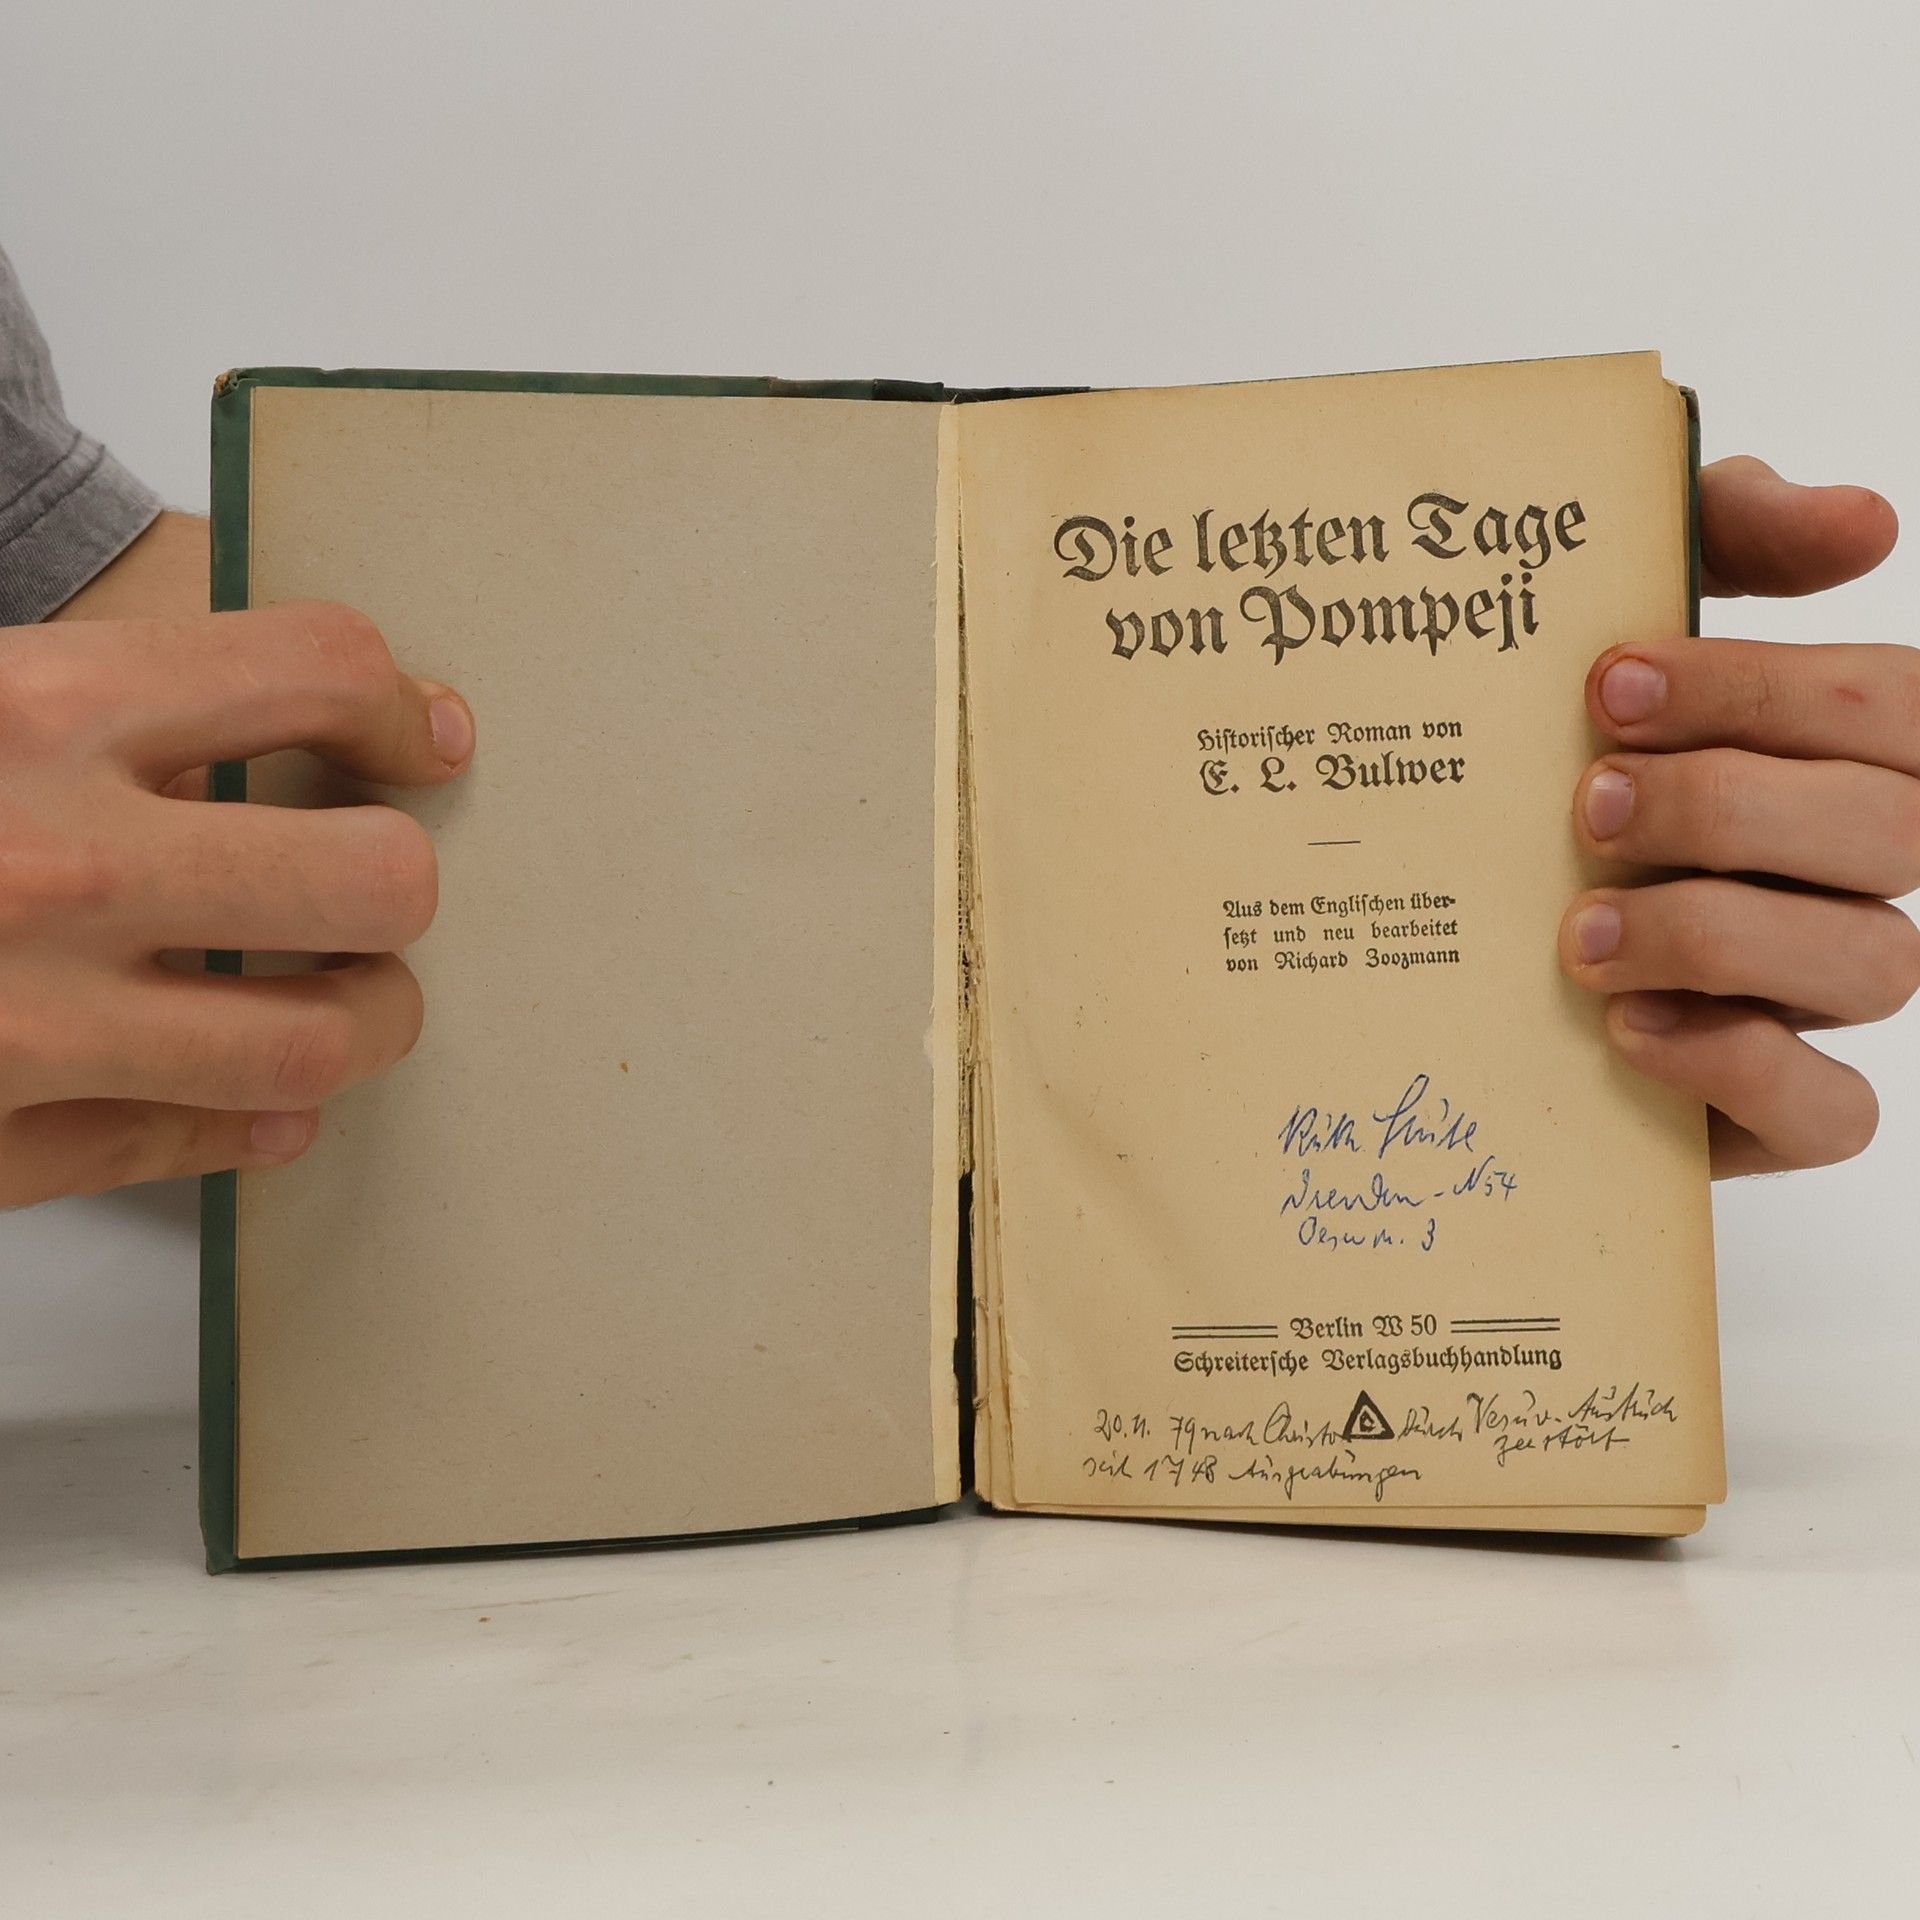 Die letzten Tage
von Pompeji
Historischer Roman von
E. L. Bulwer
Aus dem Englischen über-
setzt und neu bearbeitet
von Richard Zoozmann
Ruth
Dresden - N54
3
Berlin W 50
Schreitersche Verlagsbuchhandlung
79 nach Christo durch Vesuv-Ausbruch
zerstört
seit 1748 Ausgrabungen